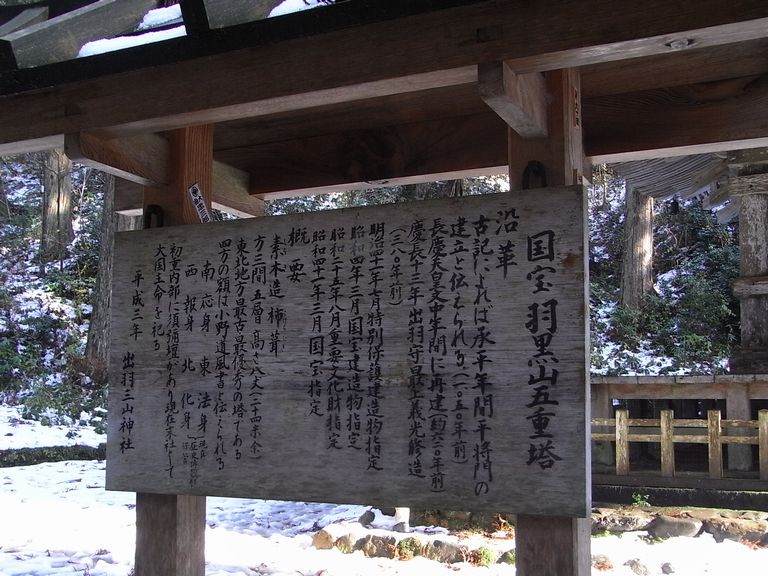 国宝 羽黒山五重塔
沿革
古記によれば承平年間平将門の
建立と伝えられる、(一〇五〇年前)
長慶天皇文中年間に再建(約六〇〇年前)
慶長十三年出羽守最上義光修造
(三八〇年前)
明治四十一年七月特別保護建造物指定
昭和四年三月国宝建造物指定
昭和二十五年八月重要文化財指定
昭和四十一年三月国宝指定
概要
素木造 杮葺
方三間五層 高さ八丈(二十四米余)
東北地方最古最優秀の塔である
四方の額は小野道風書と伝えられる
南 応身 東 法身
西 報身 北 化身
初重内部に須弥壇があり現在末社として
大国主命を祀る
平成三年 出羽三山神社